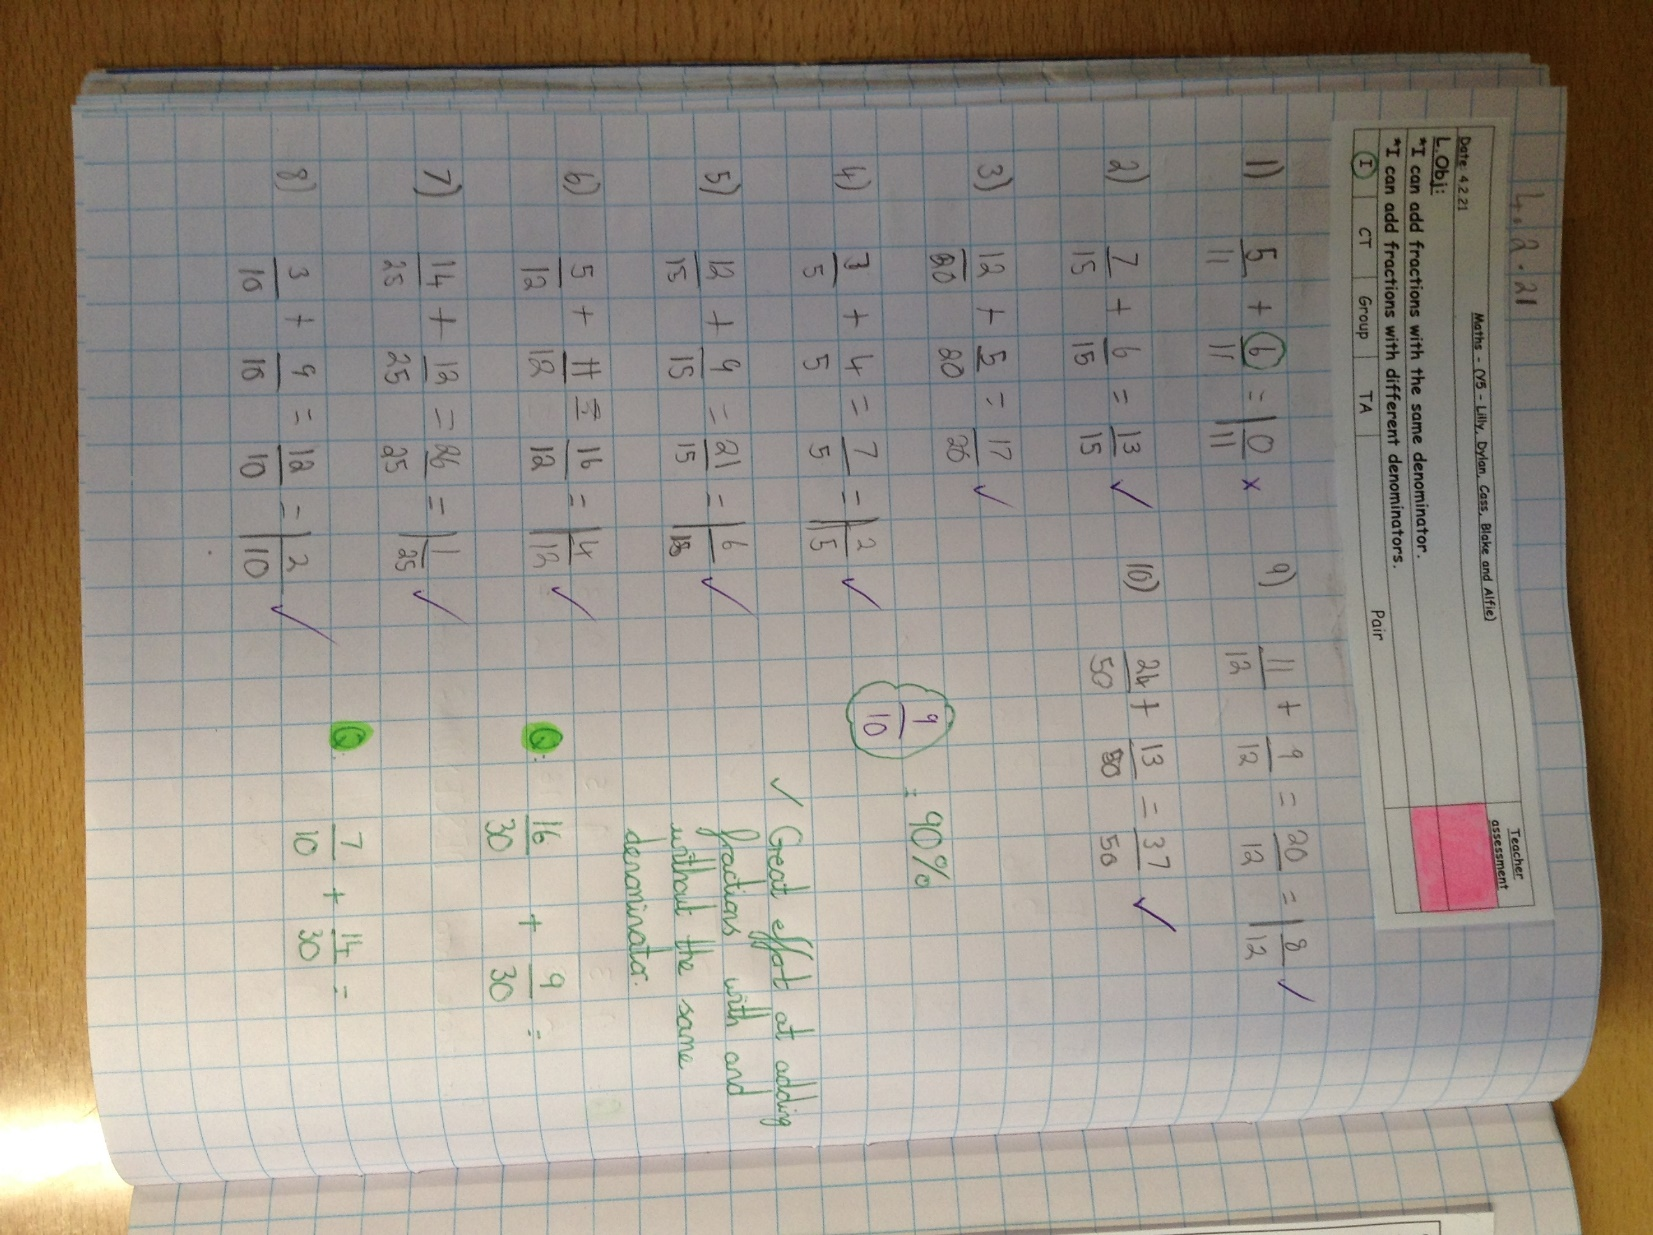 4.2.21
Maths - (Y5 - Lilly, Dylan, Cass, Blake and Alfie)
Teacher assessment
Date: 4.2.21
L.Obj:
*I can add fractions with the same denominator.
*I can add fractions with different denominators.
I CT Group TA Pair
1) 5/11 + 6/11 = 1 0/11 x
2) 7/15 + 6/15 = 13/15 ✓
3) 12/20 + 5/20 = 17/20 ✓
4) 3/5 + 4/5 = 7/5 = 1 2/5 ✓
5) 12/15 + 9/15 = 21/15 = 1 6/15 ✓
6) 5/12 + 11/12 = 16/12 = 1 4/12 ✓
7) 14/25 + 12/25 = 26/25 = 1 1/25 ✓
8) 3/10 + 9/10 = 12/10 = 1 2/10 ✓
9) 11/12 + 9/12 = 20/12 = 1 8/12 ✓
10) 24/50 + 13/50 = 37/50 ✓
9/10 = 90%
✓ Great effort at adding
fractions with and
without the same
denominator.
Q: 16/30 + 9/30 =
Q: 7/10 + 14/30 =